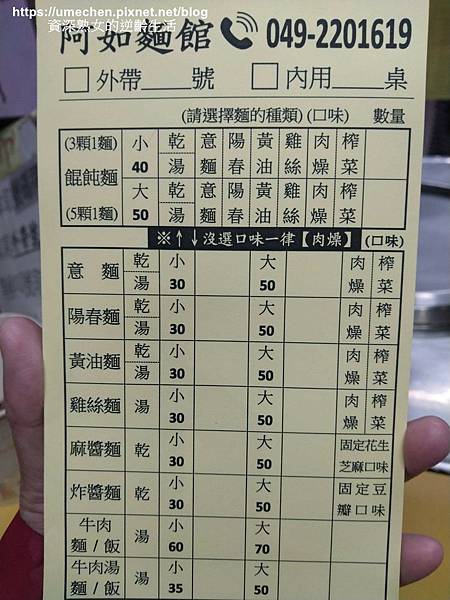 https://umechen.pixnet.net/blog
資深熟女的逆齡生活
阿如麵館 049-2201619
□外帶____號 □內用____桌
(請選擇麵的種類) (口味) 數量
(3顆1麵) 小 乾 意 陽 黃 雞 肉 榨
餛飩麵 40 湯 麵 春 油 絲 燥 菜
大 乾 意 陽 黃 雞 肉 榨
(5顆1麵) 50 湯 麵 春 油 絲 燥 菜
※↑↓沒選口味一律【肉燥】 (口味)
意麵 乾 小 大 肉 榨
湯 30 50 燥 菜
陽春麵 乾 小 大 肉 榨
湯 30 50 燥 菜
黃油麵 乾 小 大 肉 榨
湯 30 50 燥 菜
雞絲麵 湯 小 大 肉 榨
30 50 燥 菜
麻醬麵 乾 小 大 固定花生
30 50 芝麻口味
炸醬麵 乾 小 大 固定豆
30 50 瓣口味
牛肉 湯 小 大
麵/飯 60 70
牛肉湯 湯 小 大
麵/飯 35 50